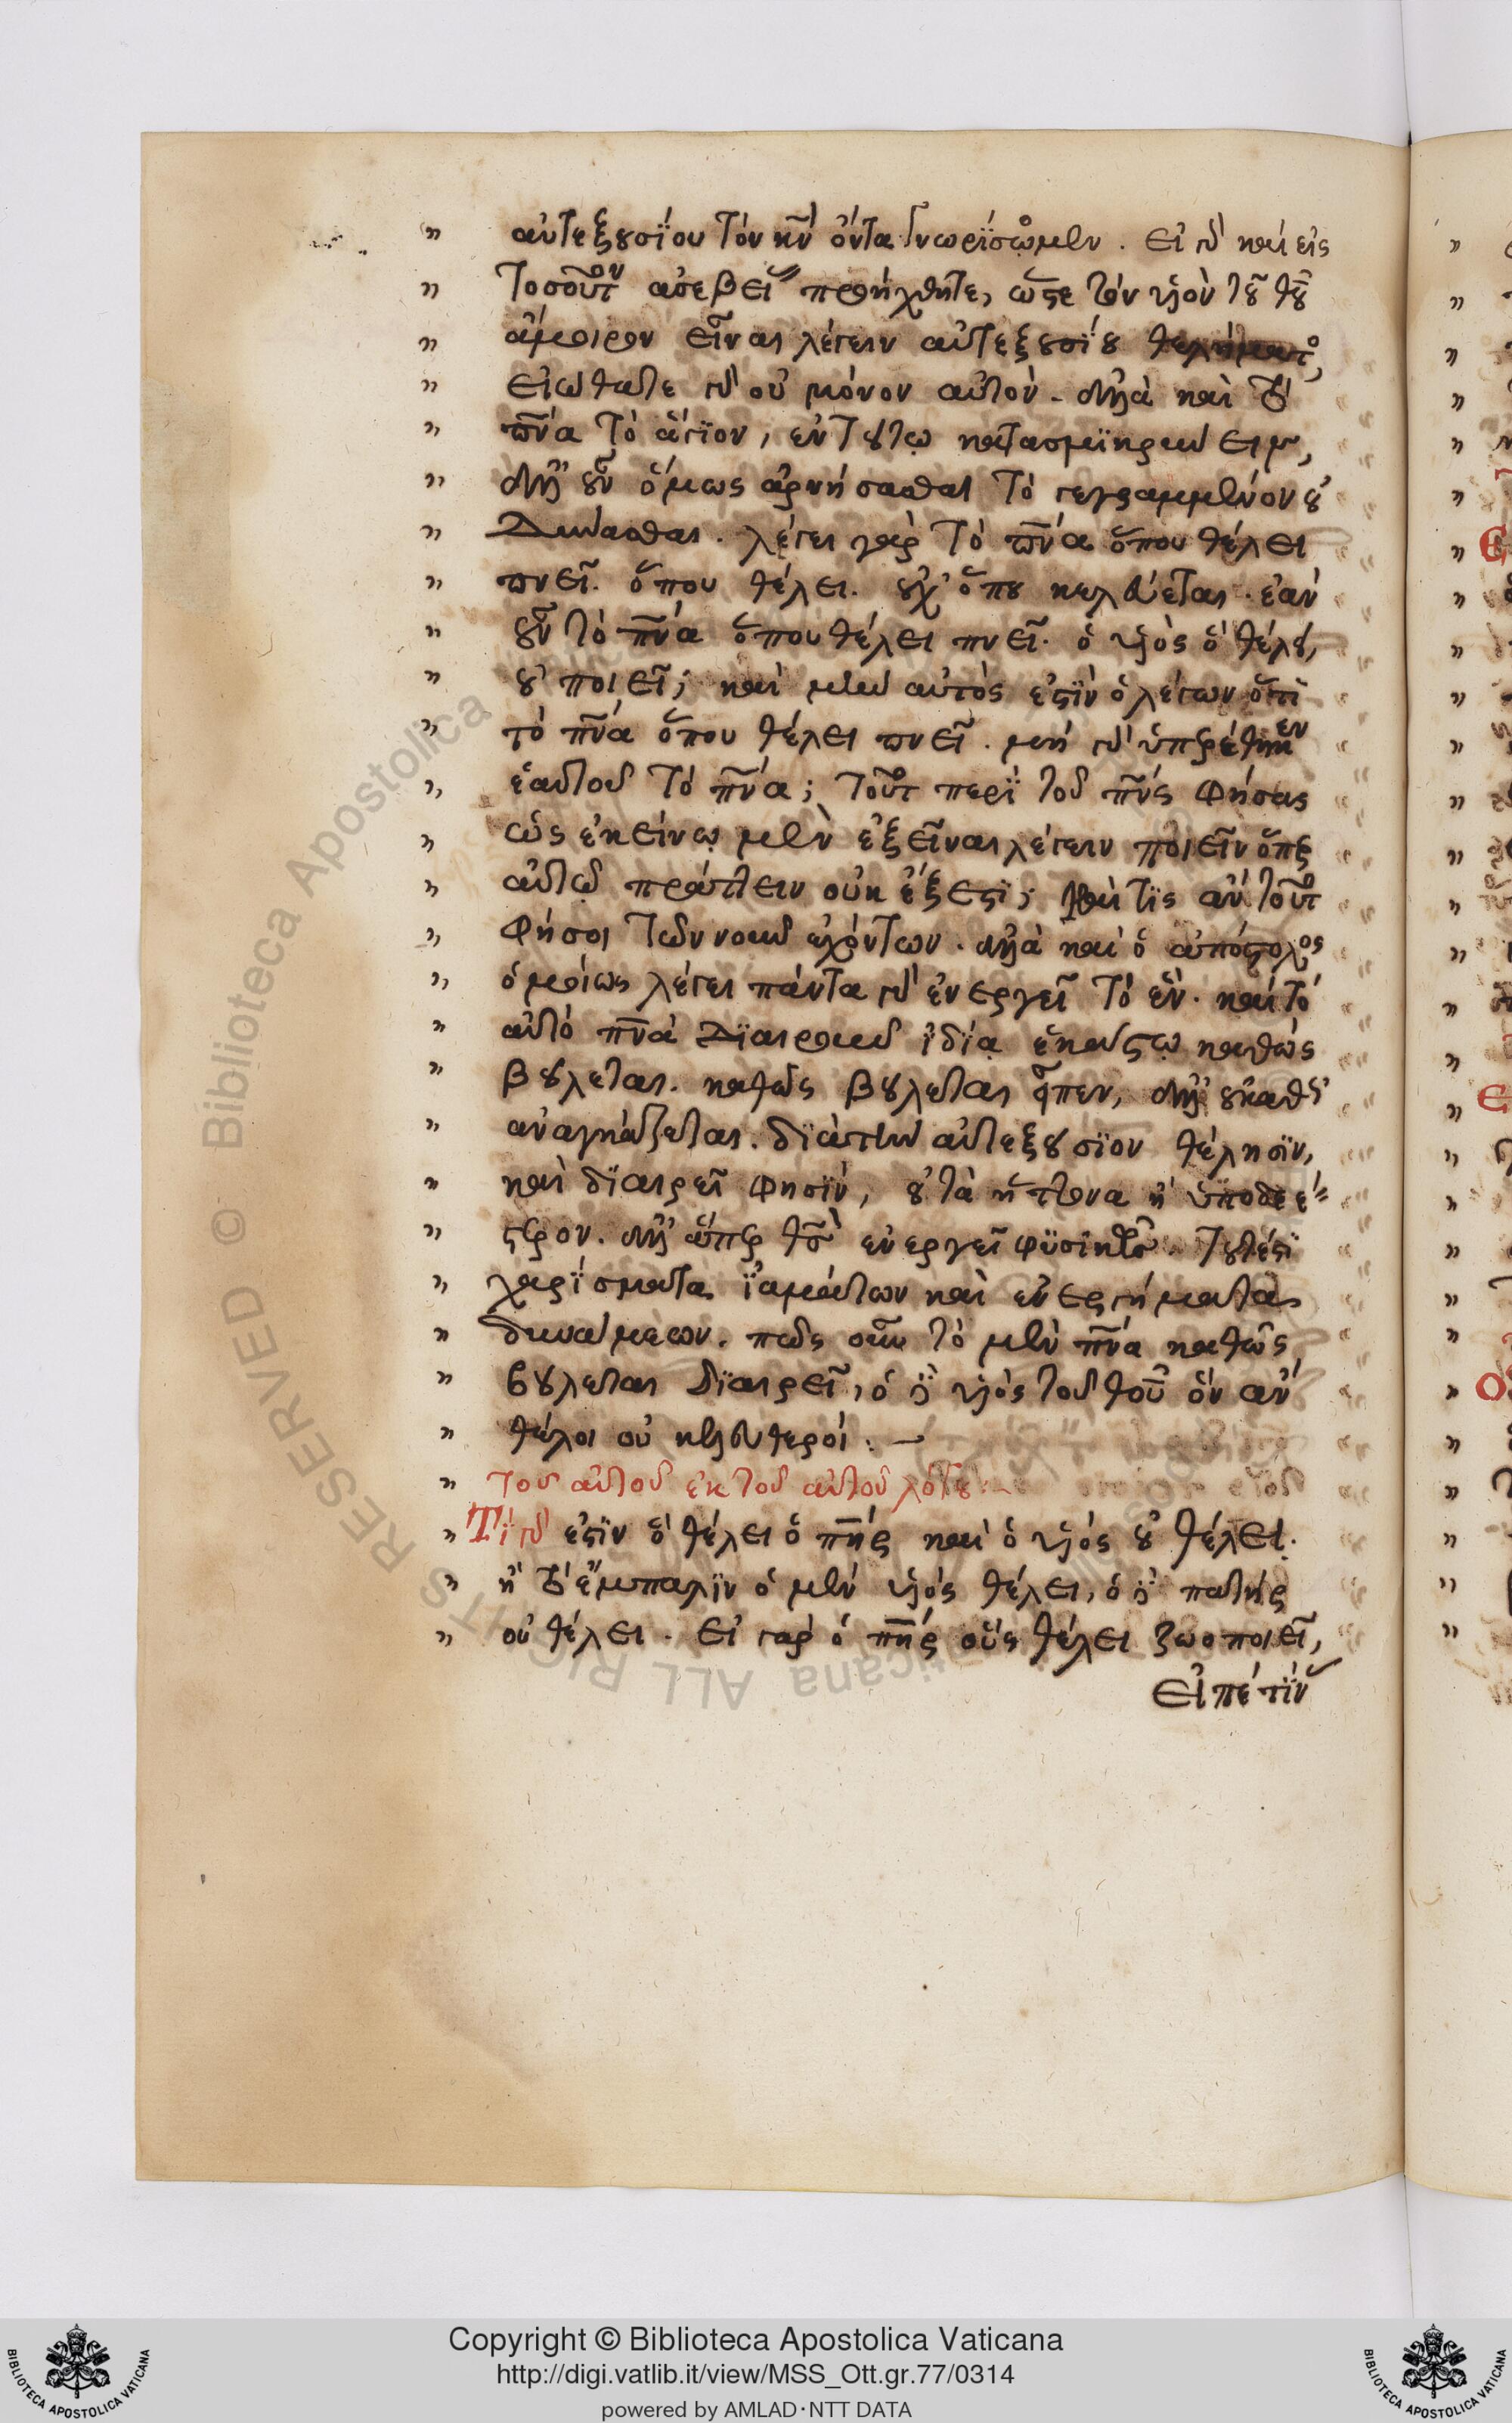 αὐτεξουσΐου τὸν νῦν ὄντα γνωρΐσωμεν. εἰ δὲ καὶ εἰς
τοσοῦτον ἀσεβείας προήχθητε, ὥστε τὸν υἱὸν τοῦ θῦ
ἄμοιρον εἶναι λέγειν αὐτεξουσΐου θελήματος,
εἰώθατε δὲ οὐ μόνον αὐτὸν. ἀλλὰ καὶ τὸ
πνα τὸ ἅγϊον, ἐν τούτω κατασμϊκρύνειν,
ἀλλ' οὖν ὅμως ἀρνήσασθαι τὸ γεγραμμένον οὐ
δύνασθαι. λέγει γὰρ τὸ πνα ὅπου θέλει
πνεῖ. ὅπου θέλει. οὐχ' ὅπου κελεύεται. ἐὰν
οὖν τὸ πνα ὅπου θέλει πνεῖ. ὁ υἱὸς ὃ θέλει,
οὐ ποιεῖ; καὶ μὴν αὐτός ἐστϊν ὁ λέγων ὅτι
τὸ πνα ὅπου θέλει πνεῖ. μὴ δὲ ὑπερέθηκεν
ἑαυτοῦ τὸ πνα; τοῦτο περὶ τοῦ πνς φήσας
ὡς ἐκείνω μὲν ἐξεῖναι λέγειν ποιεῖν ὅπερ
αὐτῶ πράττειν οὐκ ἔξεστϊ; καὶ τίς ἂν τοῦτο
φήσοι τῶν νοῦν ἐχόντων. ἀλλὰ καὶ ὁ ἀπόστολος
ὁμοίως λέγει πάντα δὲ ἐνεργεῖ τὸ ἓν. καὶ τὸ
αὐτὸ πνα διαιροῦν ἰδΐα ἑκάστω καθὼς
βούλεται. καθὼς βούλεται εἶπεν, ἀλλ' οὐ καθ'
ἀναγκάζεται. διὰ τὴν αὐτεξούσϊον θέλησϊν,
καὶ δϊαιρεῖ φησϊν, οὐ τὰ ἥττονα ἢ ὑποδεέ
στερον. ἀλλ' ἅπερ θς ἐνεργεῖ φϋσικῶς. τουτέστϊ
χαρΐσματα ἰαμάτων καὶ ἐνεργήματα
δυνάμεων. πῶς οὖν τὸ μὲν πνα καθὼς
βούλεται δϊαιρεῖ, ὁ δὲ υἱὸς τοῦ θοῦ ὃν ἂν
θέλοι οὐκ ἐλευθεροῖ.
τοῦ αὐτοῦ ἐκ τοῦ αὐτοῦ λόγου
Τΐ δὲ ἐστϊν ὃ θέλει ὁ πηρ καὶ ὁ υἱὸς οὐ θέλει.
ἢ τὸ ἔμπαλϊν ὁ μὲν υἱὸς θέλει, ὁ δὲ πατὴρ
οὐ θέλει. εἰ γὰρ ὁ πηρ οὓς θέλει ζωοποιεῖ,
εἰπέ τϊν
Copyright © Biblioteca Apostolica Vaticana
http://digi.vatlib.it/view/MSS_Ott.gr.77/0314
powered by AMLAD·NTT DATA